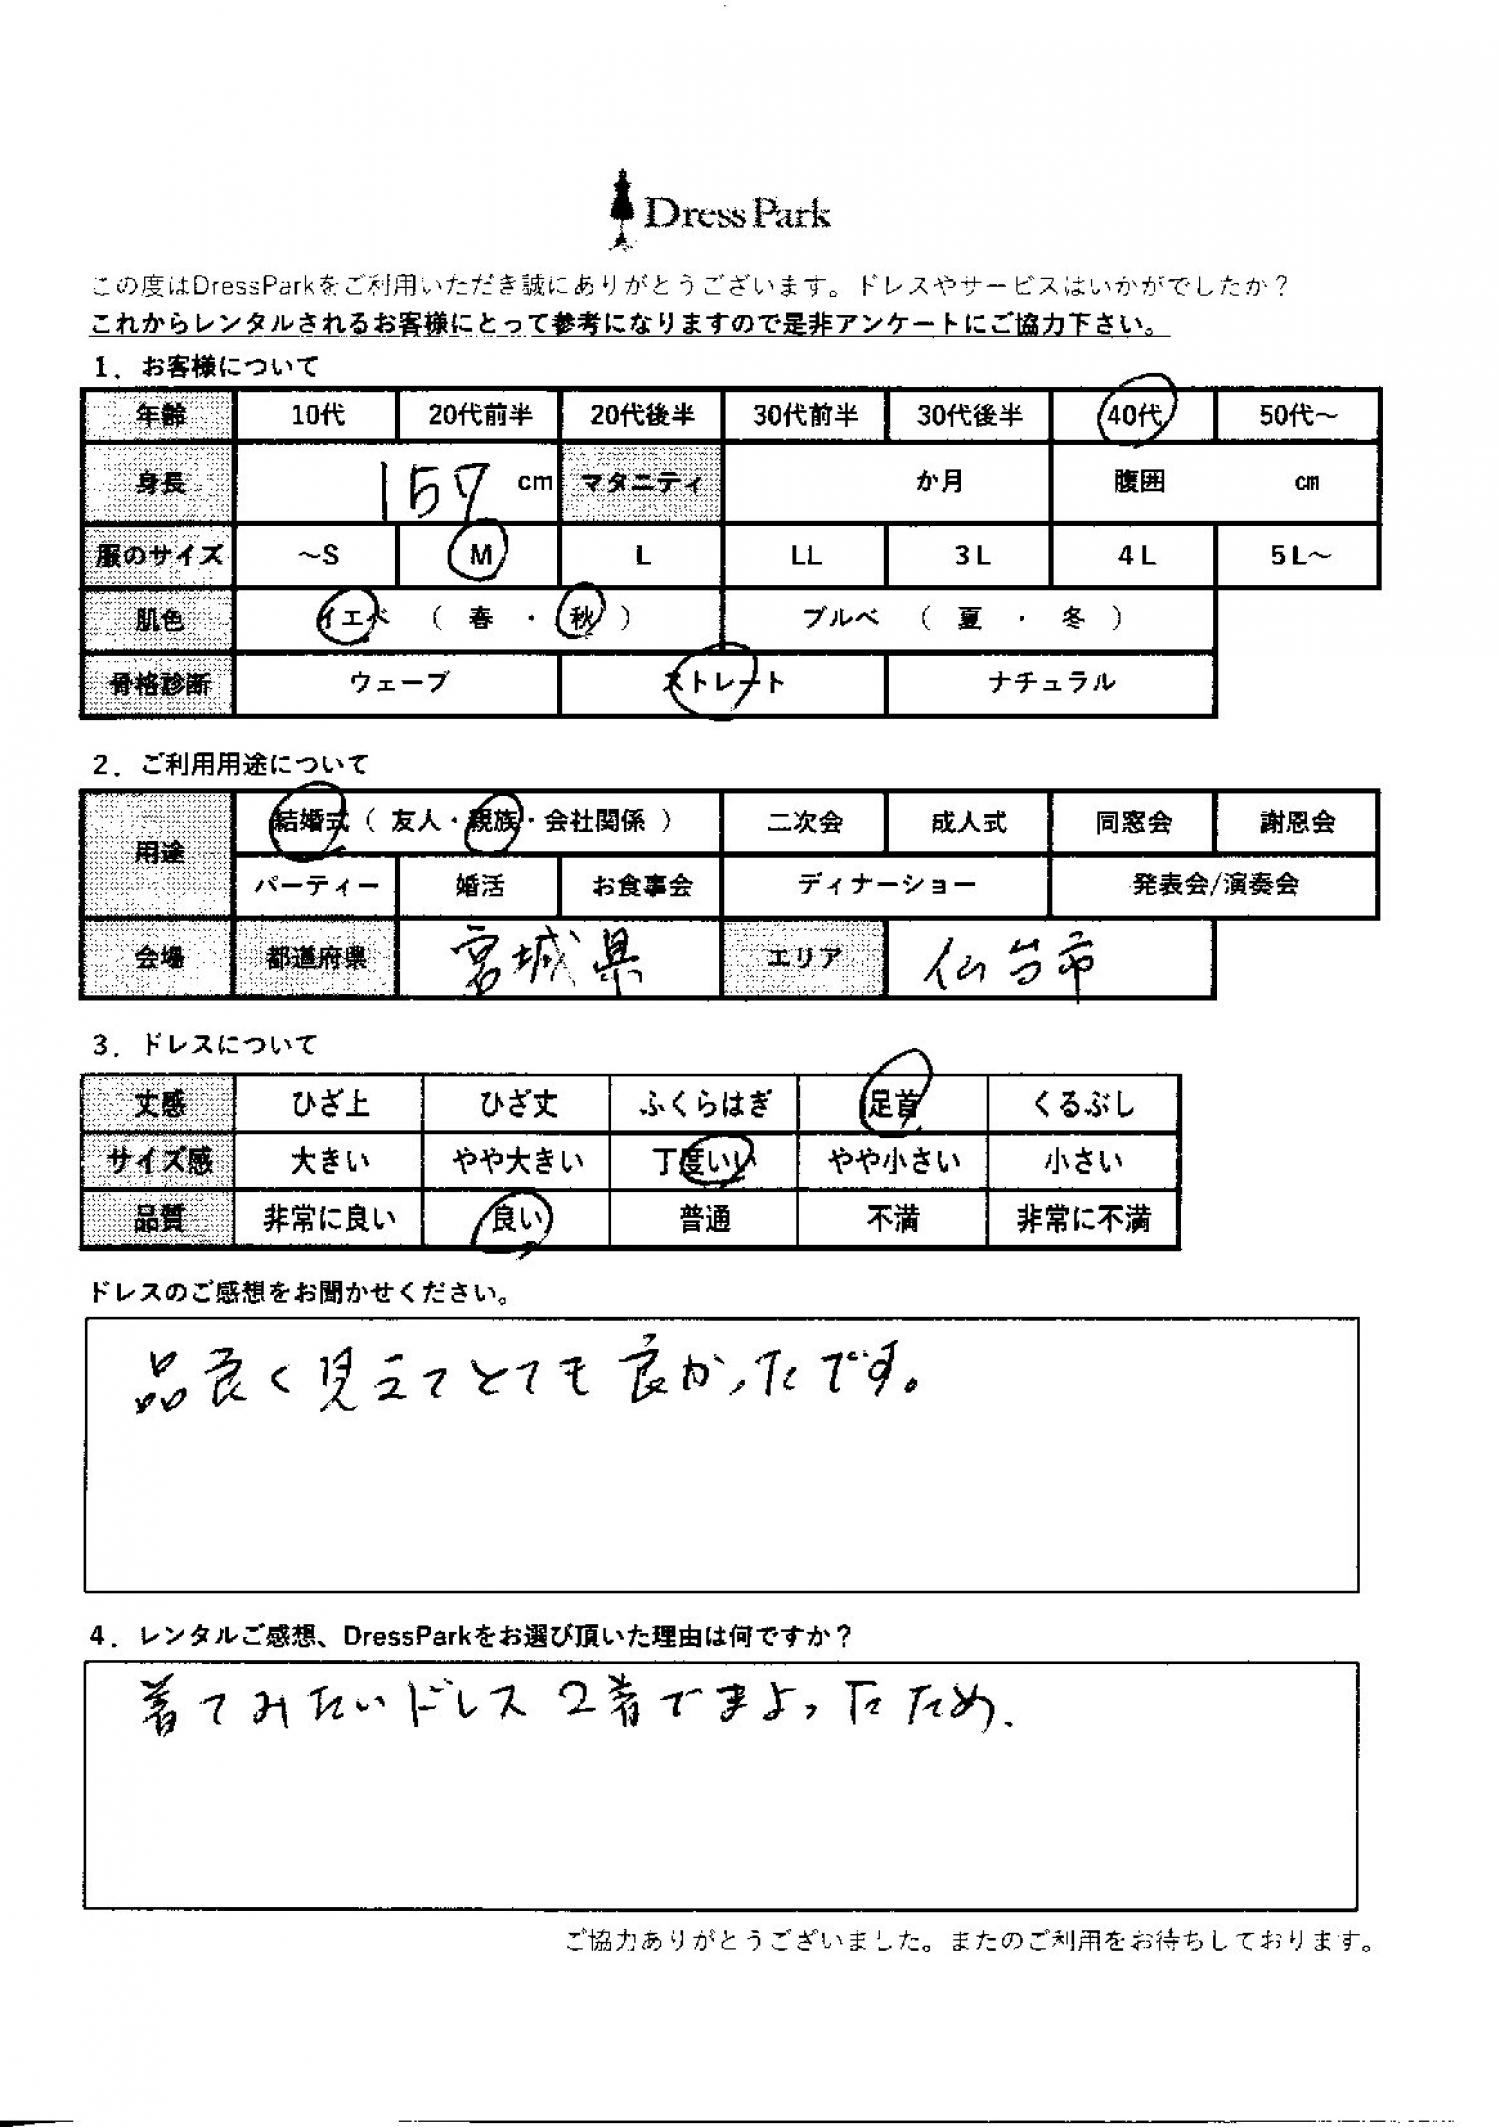 Dress Park
この度はDressParkをご利用いただき誠にありがとうございます。ドレスやサービスはいかがでしたか？
これからレンタルされるお客様にとって参考になりますので是非アンケートにご協力下さい。
1．お客様について
年齢 10代 20代前半 20代後半 30代前半 30代後半 40代 50代～
身長 157 cm マタニティ か月 腹囲 cm
服のサイズ ～S M L LL 3L 4L 5L～
肌色 イエベ （ 春 ・ 秋 ） ブルベ （ 夏 ・ 冬 ）
骨格診断 ウェーブ ストレート ナチュラル
2．ご利用用途について
用途 結婚式（ 友人・親族・会社関係 ） 二次会 成人式 同窓会 謝恩会
パーティー 婚活 お食事会 ディナーショー 発表会/演奏会
会場 都道府県 宮城県 エリア 仙台市
3．ドレスについて
丈感 ひざ上 ひざ丈 ふくらはぎ 足首 くるぶし
サイズ感 大きい やや大きい 丁度いい やや小さい 小さい
品質 非常に良い 良い 普通 不満 非常に不満
ドレスのご感想をお聞かせください。
品良く見えてとても良かったです。
4．レンタルご感想、DressParkをお選び頂いた理由は何ですか？
着てみたいドレス2着でまよったため.
ご協力ありがとうございました。またのご利用をお待ちしております。